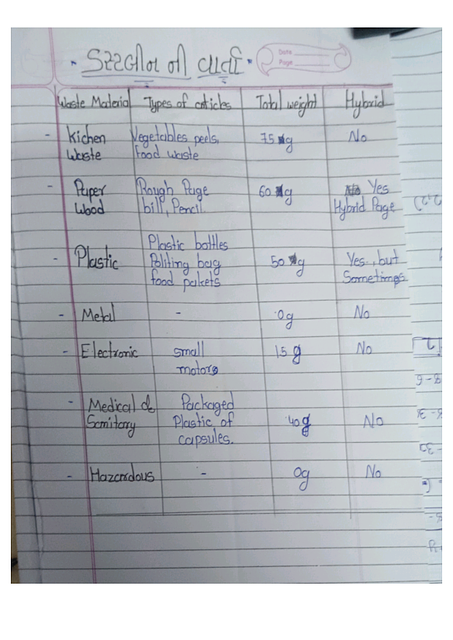 ડસ્ટબીન ની વાર્તા
Date
Page
Waste Material Types of articles Total weight Hybrid
- Kichen Waste Vegetables peels, food waste 75 g No
- Paper Wood Rough Page bill, Pencil 60 g Yes Hybrid Page
- Plastic Plastic bottles Politing bag food pakets 50 g Yes, but Sometimes
- Metal - 0g No
- Electronic small motors 15 g No
- Medical & Samitory Packaged Plastic of capsules. 40g No
- Hazardous - 0g No